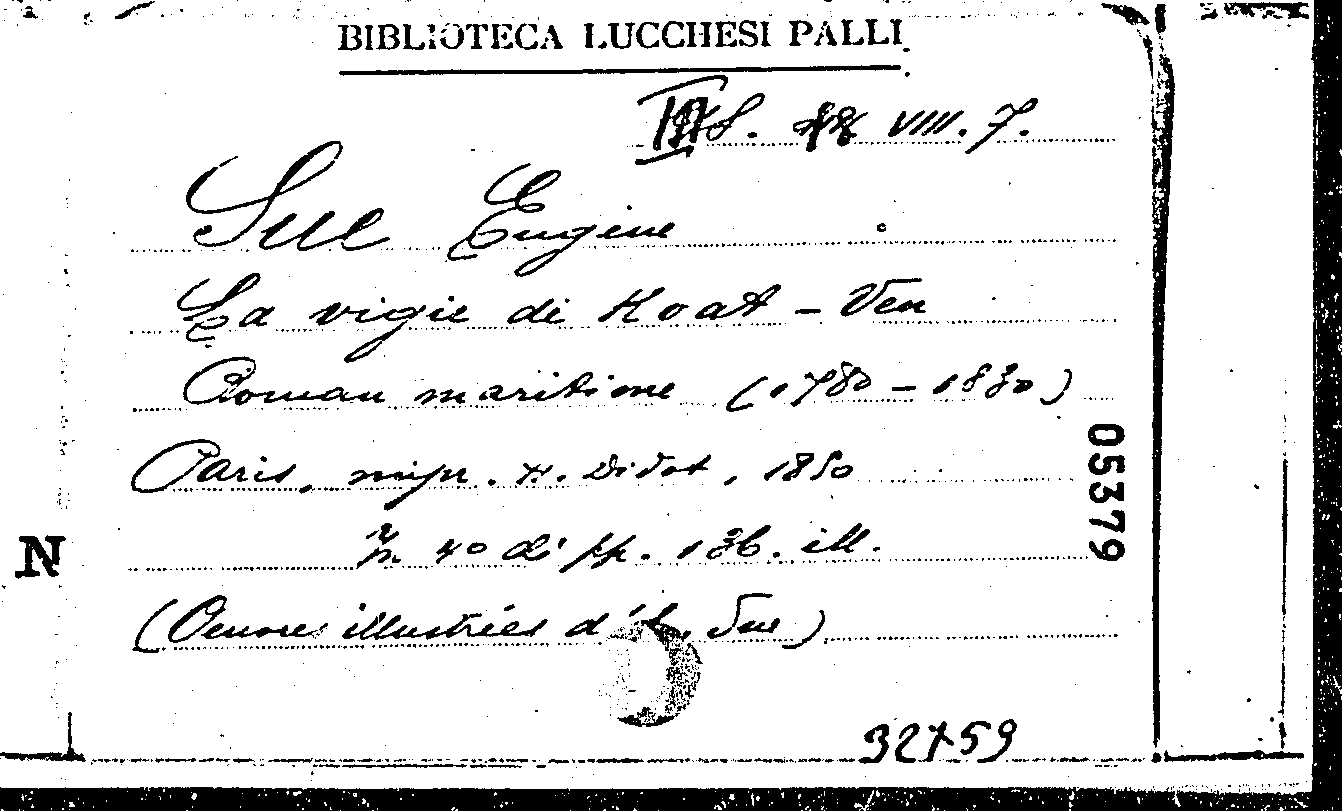 BIBLIOTECA LUCCHESI PALLI
VIII. 7.
Sue Eugène
La vigie di Koat-Ven
Roman maritime (1780-1830)
Paris, impr. H. Didot, 1850
In 4º di pp. 136. ill.
(Oeuvres illustrées d'E. Sue)
05379
N
32759